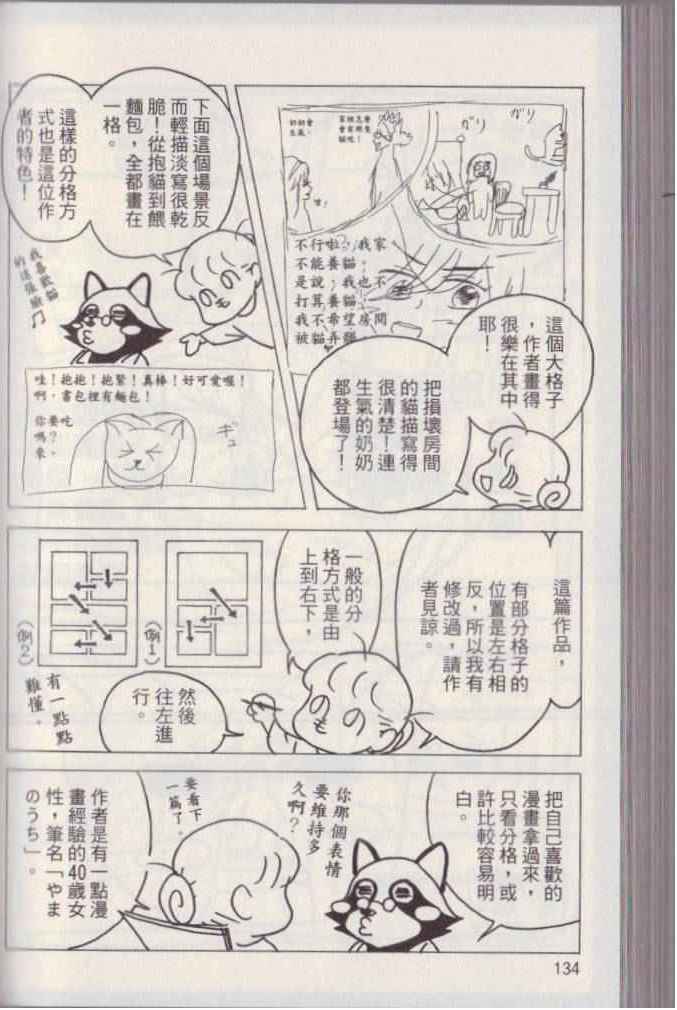 這個大格子
，作者畫得
很樂在其中
耶！
把損壞房間
的貓描寫得
很清楚！連
生氣的奶奶
都登場了！
ガリ
ガリ
不行啦，我家
不能養貓。
是說，我也不
打算養貓。
我不希望房間
被貓弄
下面這個場景反
而輕描淡寫很乾
脆！從抱貓到餵
麵包，全都畫在
一格。
這樣的分格方
式也是這位作
者的特色！
我喜歡貓
的這張臉♫
哇！抱抱！抱緊！真棒！好可愛喔！
啊，書包裡有麵包！
你要吃
嗎？
來。
ギュ
這篇作品，
有部分格子的
位置是左右相
反，所以我有
修改過，請作
者見諒。
一般的分
格方式是由
上到右下，
然後
往左進
行。
（例1）
（例2）
有一點點
難懂。
把自己喜歡的
漫畫拿過來，
只看分格，或
許比較容易明
白。
你那個表情
要維持多
久啊？
要看下
一篇了。
作者是有一點漫
畫經驗的40歲女
性，筆名「やま
のうち」。
134